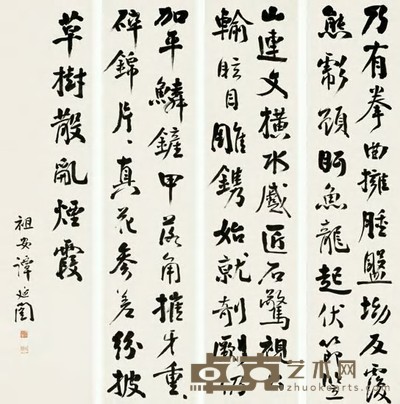 乃有拳曲擁腫盤坳反覆
熊彪顧盻魚龍起伏節豎
山連文橫水蹙匠石驚視公
輸眩目雕鐫始就剞劂仍
加平鱗鏟甲落角摧牙重〻
碎錦片〻真花參差紛披
草樹散亂煙霞
祖安譚延闓
卓克艺术网